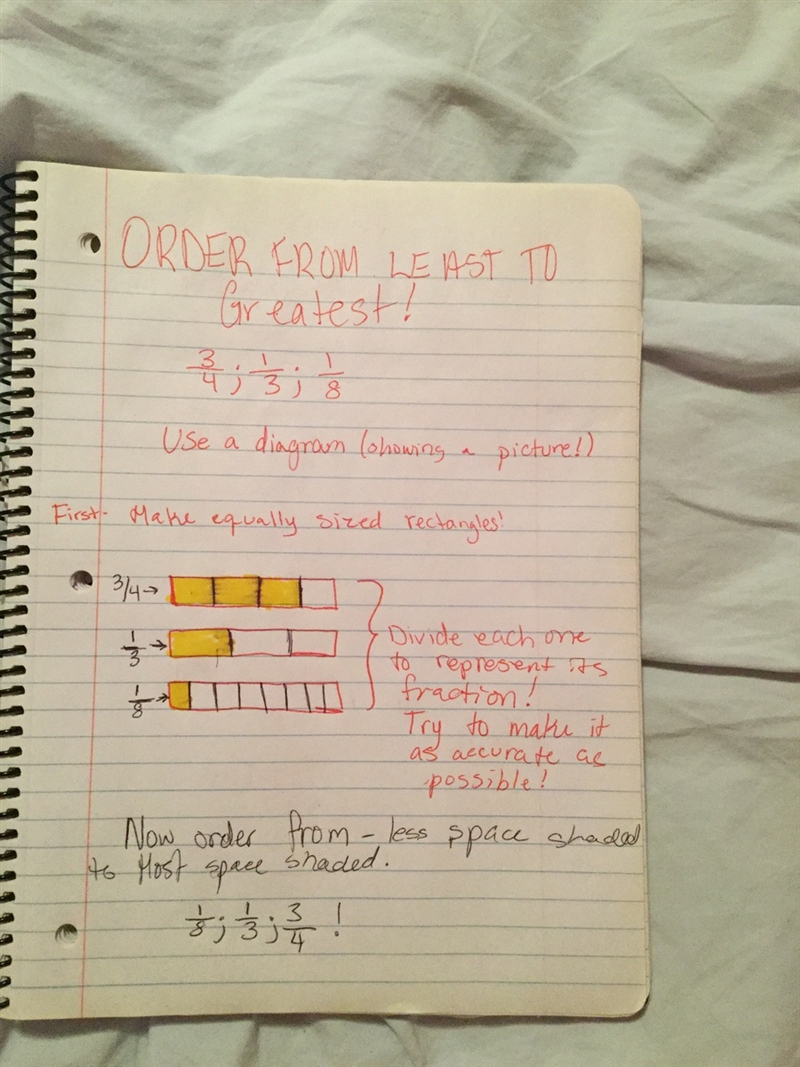 ORDER FROM LEAST TO
Greatest!
3/4 ; 1/3 ; 1/8
Use a diagram (showing a picture!)
First- Make equally sized rectangles!
3/4 →
1/3 →
1/8 →
Divide each one
to represent its
fraction!
Try to make it
as accurate as
possible!
Now order from - less space shaded
to Most space shaded.
1/8 ; 1/3 ; 3/4 !